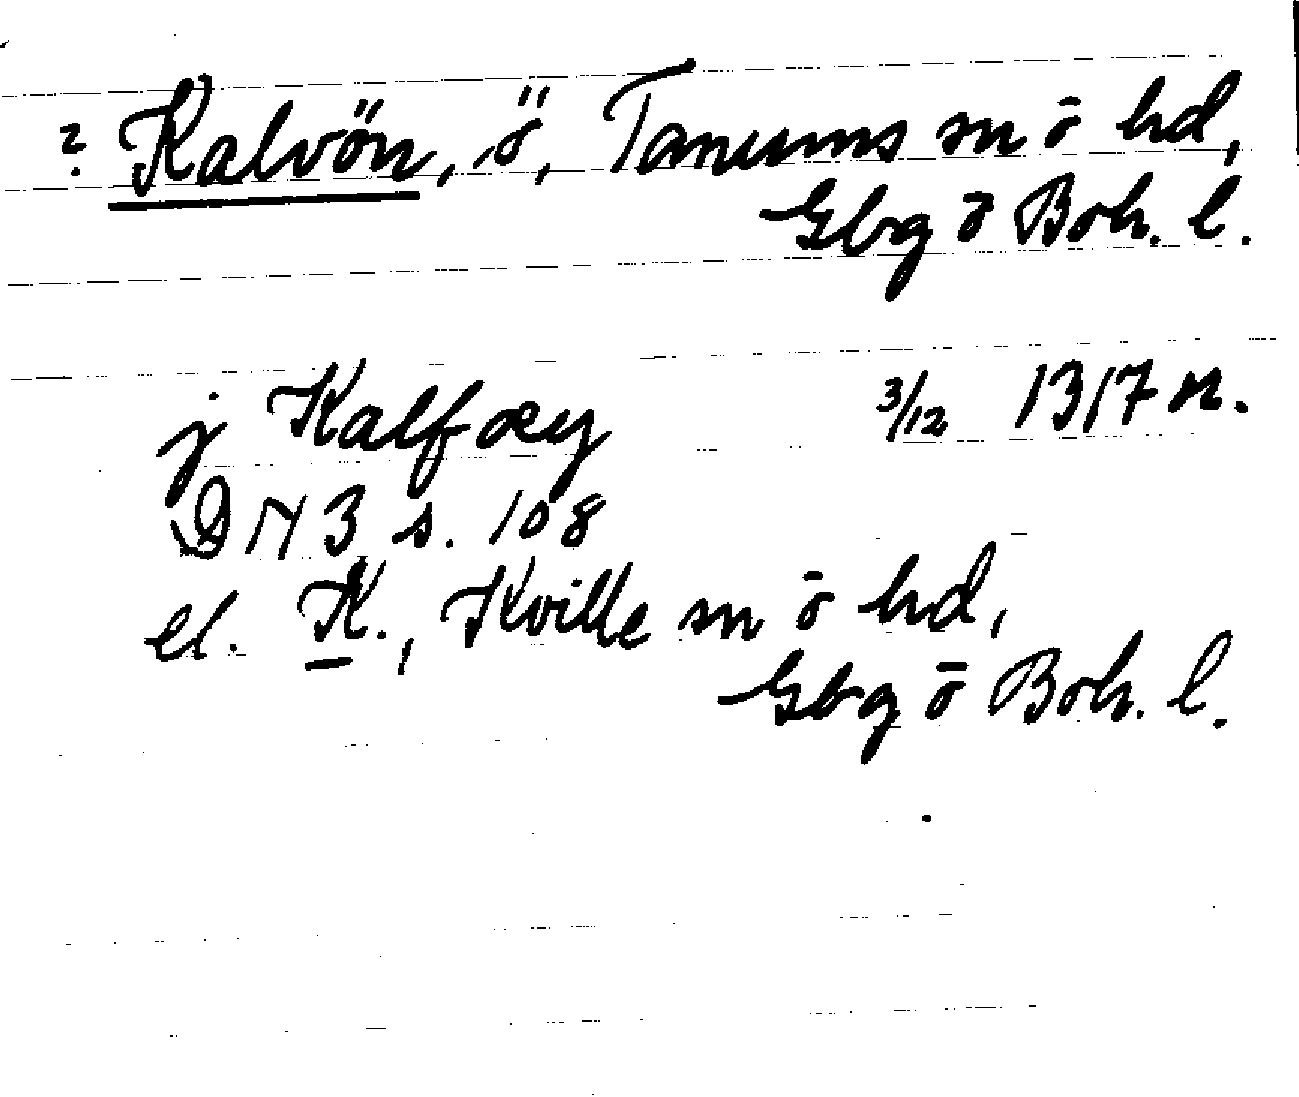 ? Kalvön, ö, Tanums sn ō hd,
Gbg ō Boh. l.
j Kalfœy 3/12 1317 n.
DN 3 s. 108
el. K., Kville sn ō hd,
Gbg ō Boh. l.